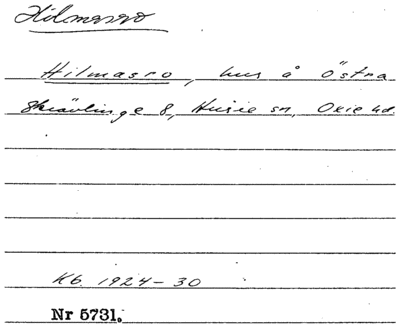 Hilmasro
Hilmasro, hus å Östra
Skrävlinge 8, Husie sn, Oxie hd.
Kb. 1924-30
Nr 5731.